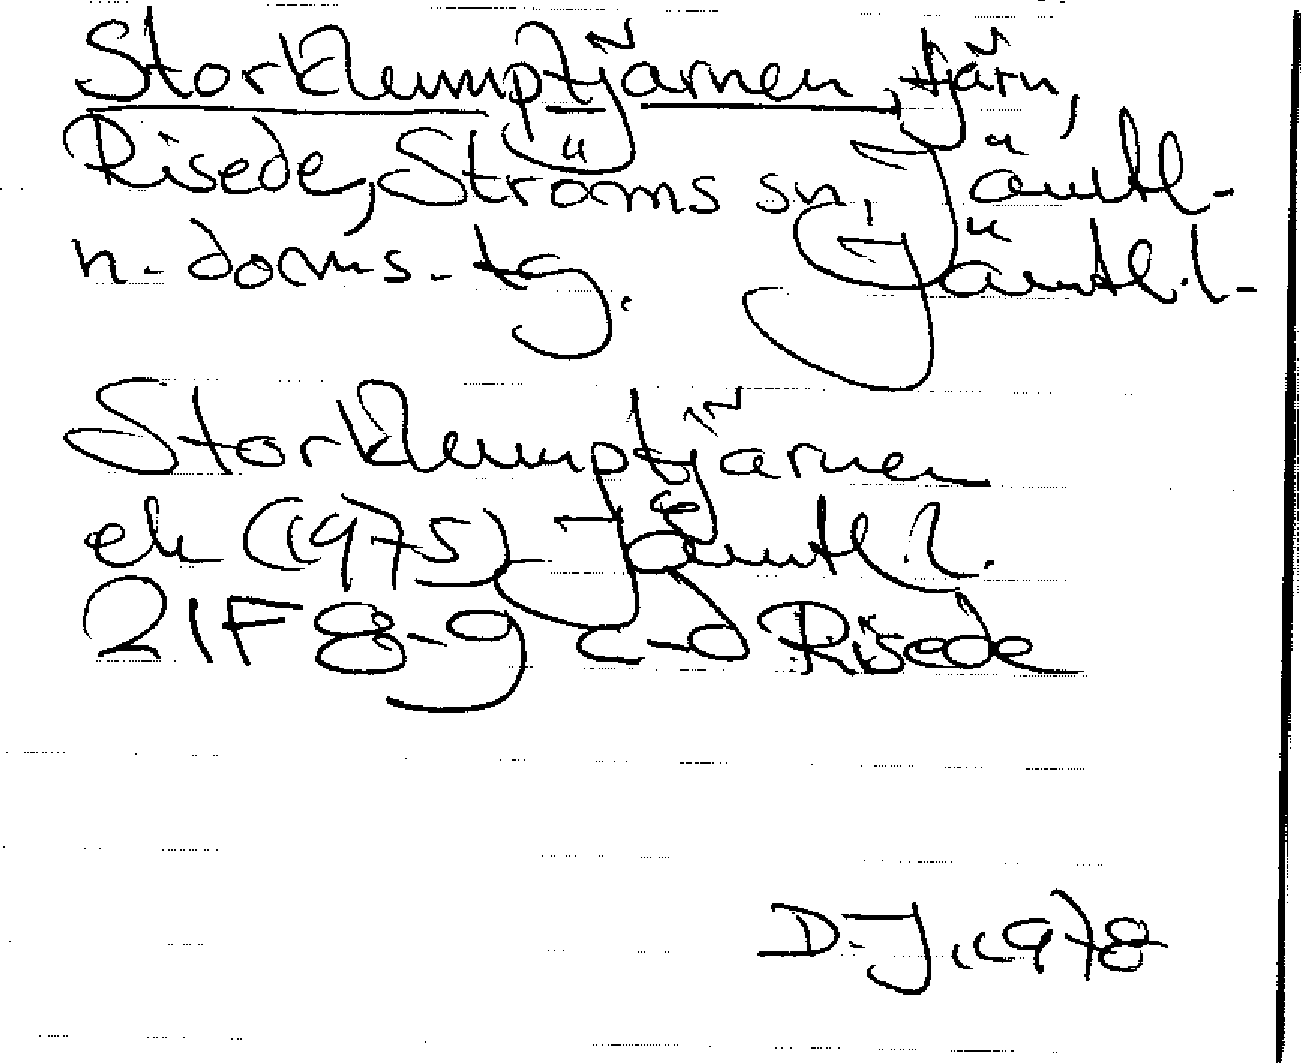 Storklumptjärnen, tjärn,
Risede, Ströms sn, Jämtl.
n. doms. tg. Jämtl. l.
Storklumptjärnen
ek (1975) Jämtl. l.
21F 8-9 c-d Risede
D.J. 1978